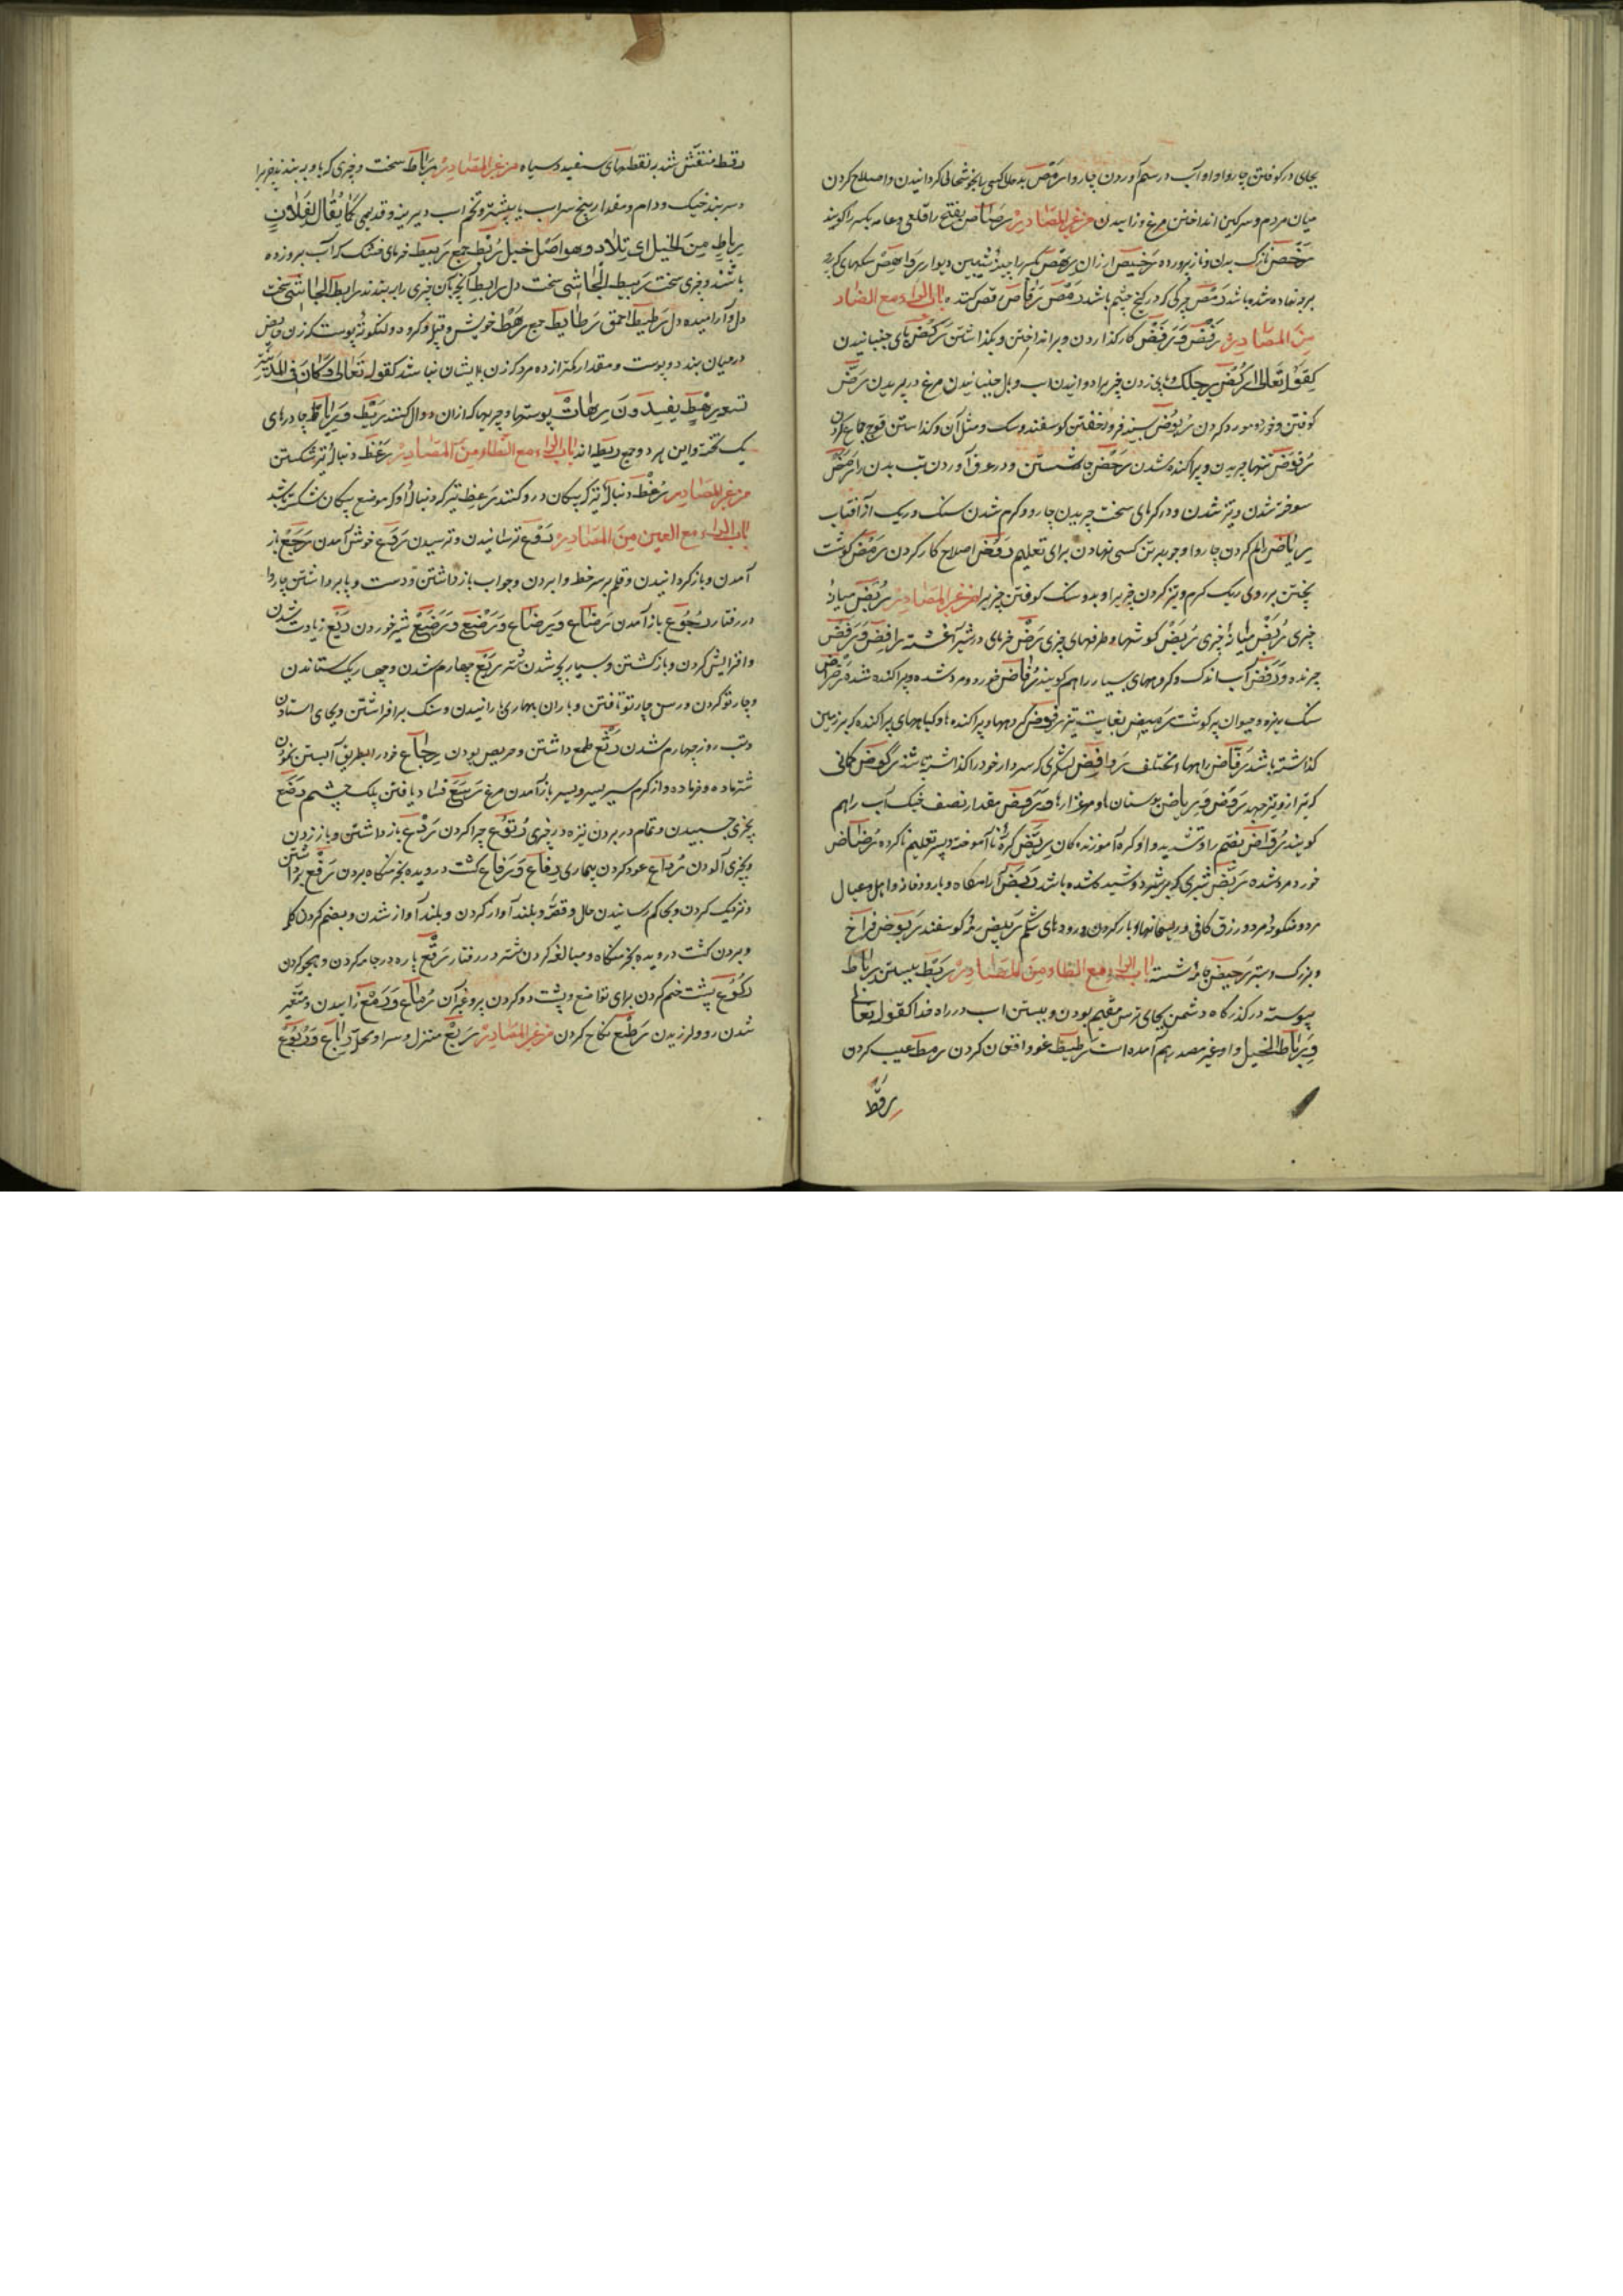 بجای در کوفتن چاروا و او آب در سم آوردن چاروا رمص بد حال کسی را بخوشحالی گردانیدن و اصلاح کردن
میان مردم و سرکین انداختن مرغ و زاییدن من غیر المصادر رصاص بفتح را قلعی و عامه بکسر را گویند
رخص نازک بدن و ناز پرورده رخیص ارزان رهص بکسر را چینه شیبین دیوار رواهص سنگهای که بر
برو نهاده شده باشد رمص چرکی که در کنج چشم باشد رقص رقاص رقص کننده باب الراء مع الضاد
من المصادر رفض و رفض کار گذاردن و بر انداختن و بگذاشتن رکض پای جنبانیدن
کقوله تعالی ارکض برجلک و پای زدن چیزی را و دوانیدن اسب و بال جنبانیدن مرغ در پریدن رض
کوفتن و خورده مورد کردن ربوض سینه فرو خفتن گوسفند و سگ و مثل آن و گذاشتن قوچ جماع کردن
رفوض تنها چریدن و پراکنده شدن رحض جامه شستن و در عرق آوردن تب بدن را رمض
سوخته شدن و تیز شدن و در گرمای سخت چریدن چاروا و گرم شدن سنگ و ریگ از آفتاب
ریاض رام کردن چاروا و چوب برتن کسی نهادن برای تعلیم رفض اصلاح کار کردن رمض گوشت
پختن بر روی ریگ گرم و تیز کردن چیزی را و بدو سنگ کوفتن چیزی را من غیر المصادر ربض میانهٔ
چیزی ربض میانهٔ چیزی ربض گوشها و طرفهای چیزی رض خرمای در شیر آغشته رافض و رفض
چرنده و رفض آب اندک و گروههای بسیار را هم گویند رفاض خورد و مرد شده و پراکنده شده رضراض
سنگ ریزه و حیوان پر گوشت رمیض بغایت تیز رفوض گروهها و پراکندها و گیاههای پراکنده که بر زمین
گذاشته باشد رفاض راهها و مختلف روافض لشکری که سردار خود را گذاشته باشند رکوض کمانی
که تیر ازو تیز جهد رفض و ریاض بوستانها و مرغزارها و رفض مقدار نصف خیک آب را هم
گویند رواض بضم را و تشدید واو کره آموزندگان ریض کرهٔ نا آموخته و پسر تعلیم ناکرده رضاض
خورد و مرد شده ربض شیری که بر شرد و شیده شده باشد ربض آرامگاه و بارو و خانه و اهل و عیال
مرد و منکوحهٔ مرد و رزق کافی و ریسمانها و بار کردن و رودهای شکم ربیض رمهٔ گوسفند ربوض فراخ
و بزرگ و ستبر رحیض جامهٔ شسته باب الراء مع الطاء من المصادر ربط بستن رباط
پیوسته در گذرگاه دشمن بجای ترس مقیم بودن و بستن اسب در راه خدا کقوله تعالی
و رباط الخیل و او غیر مصدر هم آمده است رطیط غوغا و افغان کردن رمط عیب کردن
رقط
رقط منقش شدن بنقطهای سفید و سیاه من غیر المصادر رباط سخت و چیزی که باو به بندند چیزی را
و سر بند خیک و دام و مقدار پنج سر اسب یا بیشتر و تخم اسب دیرینه و قدیمی کما یقال لفلان
رباط من الخیل ای تلاد و هو اصل خیل ربط جمع ربیط خرمای خشک که آب برو زده
باشند و چیزی سخت ربیط الجاش سخت دل رابط آنچه بآن چیزی را ببندند رابط الجاش سخت
دل و آرامیده دل رطیط احمق رطایط جمع رهط خویش و قبیله و گروه و لنگوتهٔ پوست که زن حایض
در میان بندد و پوست و مقدار کمتر از ده مرد که زن بایشان نباشد کقوله تعالی و کان فی المدینة
تسعة رهط یفسدون رهاط پوستها و چرمها که از آن دوال کنند ریط و ریاط چادرهای
یک تخته و این هر دو جمع ریطه اند باب الراء مع الظاء من المصادر رعظ دنبالهٔ تیر شکستن
من غیر المصادر رعظ دنبالهٔ تیر که پیکان در و کنند رعظ تیر که دنبالهٔ او که موضع پیکان شکسته باشد
باب الراء مع العین من المصادر روع ترسانیدن و ترسیدن روع خوش آمدن رجع باز
آمدن و باز گردانیدن و قلم بر سر خط وا بردن و جواب باز داشتن و دست و پا برداشتن چاروا
در رفتار رجوع باز آمدن رضاع و رضاع و رضع و رضع شیر خوردن ریع زیادت شدن
و افزایش کردن و باز گشتن و بسیار بچه شدن شتر ربع چهارم شدن و چهار یک ستاندن
و چار تو کردن و رسن چار تو تافتن و باران بهاری بارانیدن و سنگ بر افراشتن و بجای استادن
و تب روز چهارم شدن رتع طمع داشتن و حریص بودن رجاع خود را بطریق آبستن نمودن
شتر ماده و خر ماده و از گرم سیر بسردسیر باز آمدن مرغ رسع فساد یافتن پلک چشم رصع
بچیزی چسپیدن و تمام در بردن نیزه در چیزی رتوع چرا کردن ردع باز داشتن و باز زدن
و بچیزی آلودن رداع عود کردن بیماری رفاع و رفاع کشت درویده بخرمنگاه بردن رفع برداشتن
و نزدیک کردن و بحاکم رسانیدن حال و قصه و بلند آواز کردن و بلند آواز شدن و بضم کردن کلمه
و بردن کشت درویده بخرمنگاه و مبالغه کردن شتر در رفتار رقع پاره در جامه کردن و هجو کردن
رکوع پشت خم کردن برای تواضع و پشت دو کردن پیر و غیر آن رماع و رمع زاییدن و متغیر
شدن رو و لرزیدن رطع نکاح کردن من غیر المصادر ربع منزل و سرا و محل رباع و ربوع